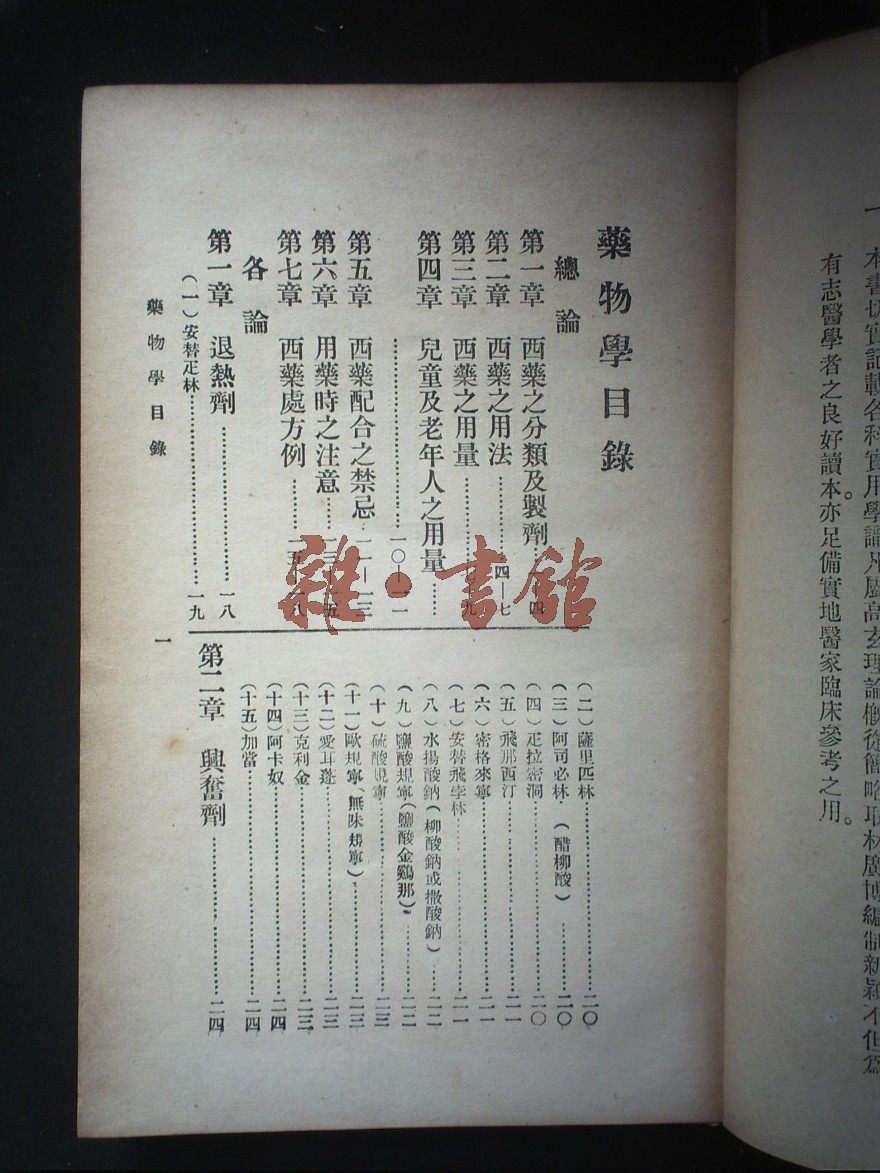 一 本書切實記載各科實用學識凡屬高玄理論概從簡略取材廣博編制新穎不但爲
有志醫學者之良好讀本。亦足備實地醫家臨床參考之用。
藥物學目錄
總論
第一章 西藥之分類及製劑………四
第二章 西藥之用法………四—七
第三章 西藥之用量………九
第四章 兒童及老年人之用量……
………一〇—一一
第五章 西藥配合之禁忌…一一—一三
第六章 用藥時之注意…一三—一五
第七章 西藥處方例………一五—一八
各論
第一章 退熱劑………一八
(一)安替疋林………一九
(二)薩里匹林………二〇
(三)阿司必林(醋柳酸)………二〇
(四)疋拉密洞………二〇
(五)飛那西汀………二一
(六)密格來寧………二一
(七)安替飛李林………二一
(八)水揚酸鈉(柳酸鈉或撒酸鈉)……二二
(九)鹽酸規寧(鹽酸金鷄那)………二二
(十)硫酸規寧………二三
(十一)歐規寧(無味規寧)………二三
(十二)愛耳蓬………二三
(十三)克利金………二三
(十四)阿卡奴………二四
(十五)加當………二四
第二章 興奮劑………二四
藥物學目錄
一
雜·書館